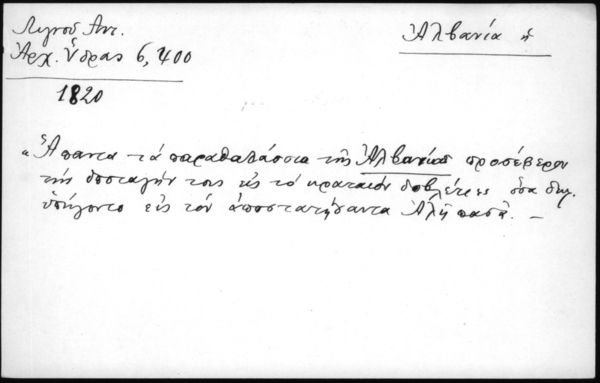 Λιγνοῦ Ἀντ.
Ἀρχ. Ὕδρας 6, 400
Ἀλβανία ἡ
1820
"Ἅπαντα τὰ παραθαλάσσια τῆς Ἀλβανίας προσέφερον
τὴν ὑποταγήν τους εἰς τὸ κραταιὸν δοβλέτι, ὅσα δηλ.
ὑπήγοντο εἰς τὸν ἀποστατήσαντα Ἀλῆ πασᾶ. –